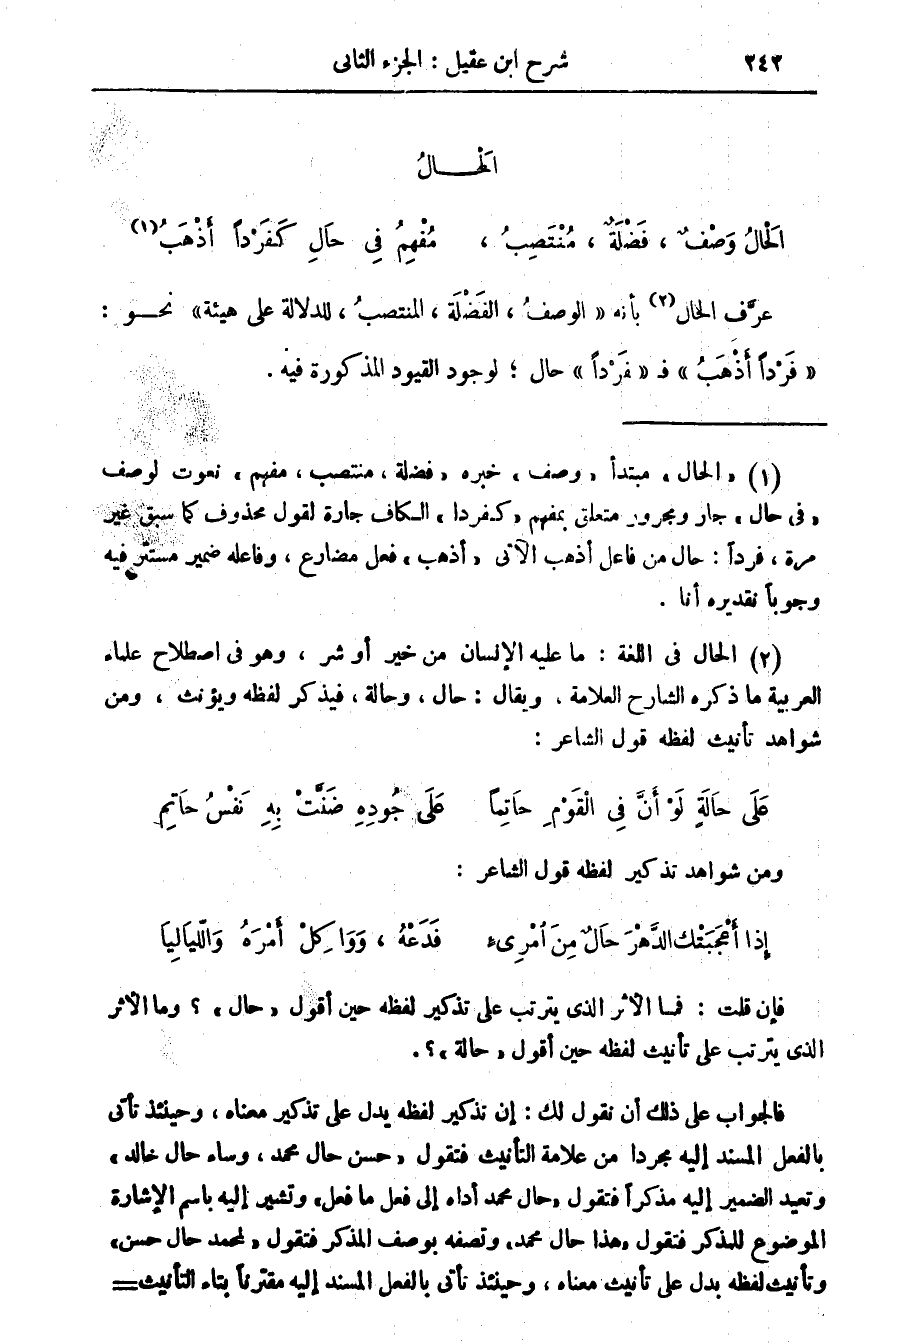 ٢٤٣ شرح ابن عقيل : الجزء الثانى
الحَــالُ
الْحَالُ وَصْفٌ ، فَضْلَةٌ ، مُنْتَصِبُ ، مُفْهِمُ فِى حَالِ كَفَرْداً أَذْهَبُ (١)
عرَّف الحال (٢) بأنه « الوصفُ ، الفَضْلَة ، المنتصبُ ، للدلالة على هيئة » نحــو :
« فَرْداً أَذْهَبُ » فـ « فَرْداً » حال ؛ لوجود القيود المذكورة فيه .
(١) « الحال » مبتدأ « وصف » خبره « فضلة ، منتصب ، مفهم » نعوت لوصف
« فى حال » جار ومجرور متعلق بمفهم « كفردا » الكاف جارة لقول محذوف كما سبق غير
مرة ، فرداً : حال من فاعل أذهب الآتى « أذهب » فعل مضارع ، وفاعله ضمير مستتر فيه
وجوباً تقديره أنا .
(٢) الحال فى اللغة : ما عليه الإنسان من خير أو شر ، وهو فى اصطلاح علماء
العربية ما ذكره الشارح العلامة ، ويقال : حال ، وحالة ، فيذكر لفظه ويؤنث ، ومن
شواهد تأنيث لفظه قول الشاعر :
عَلَى حَالَةٍ لَوْ أَنَّ فِى الْقَوْمِ حَاتِمًا عَلَى جُودِهِ ضَنَّتْ بِهِ نَفْسُ حَاتِمِ
ومن شواهد تذكير لفظه قول الشاعر :
إِذا أَعْجَبَتْكَ الدَّهْرَ حَالٌ مِنَ اُمْرِىء فَدَعْهُ ، وَوَاكِلْ أَمْرَهُ وَاللَّيَالِيَا
فإن قلت : فمـا الأثر الذى يترتب على تذكير لفظه حين أقول « حال » ؟ وما الأثر
الذى يترتب على تأنيث لفظه حين أقول « حالة » ؟ .
فالجواب على ذلك أن نقول لك : إن تذكير لفظه يدل على تذكير معناه ، وحينئذ تأتى
بالفعل المسند إليه مجردا من علامة التأنيث فتقول « حسن حال محمد ، وساء حال خالد »
وتعيد الضمير إليه مذكراً فتقول « حال محمد أداه إلى فعل ما فعل » وتشير إليه باسم الإشارة
الموضوع للمذكر فتقول « هذا حال محمد » وتصفه بوصف المذكر فتقول « لمحمد حال حسن »
وتأنيث لفظه يدل على تأنيث معناه ، وحينئذ تأتى بالفعل المسند إليه مقترناً بتاء التأنيث =